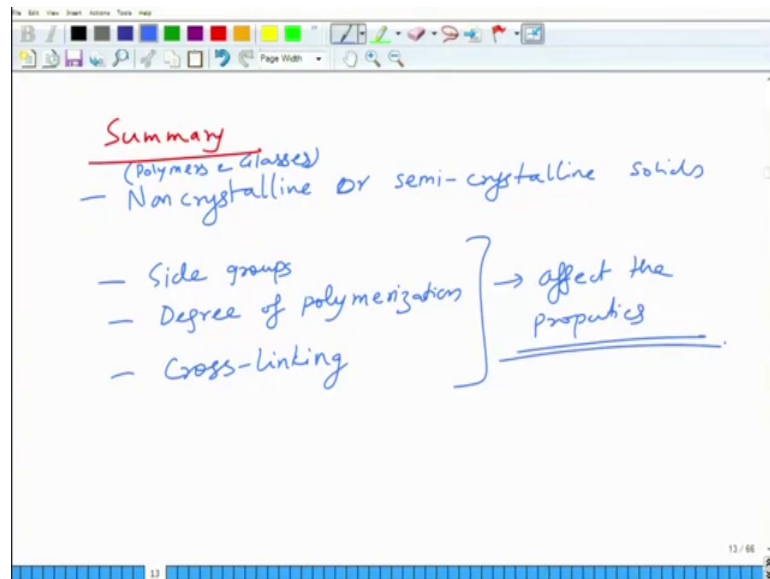 File Edit View Insert Actions Tools Help
B I
Page Width
Summary
(Polymers & Glasses)
— Noncrystalline or semi-crystalline solids
— Side groups
— Degree of polymerization → affect the properties
— Cross-linking
13 / 66
13